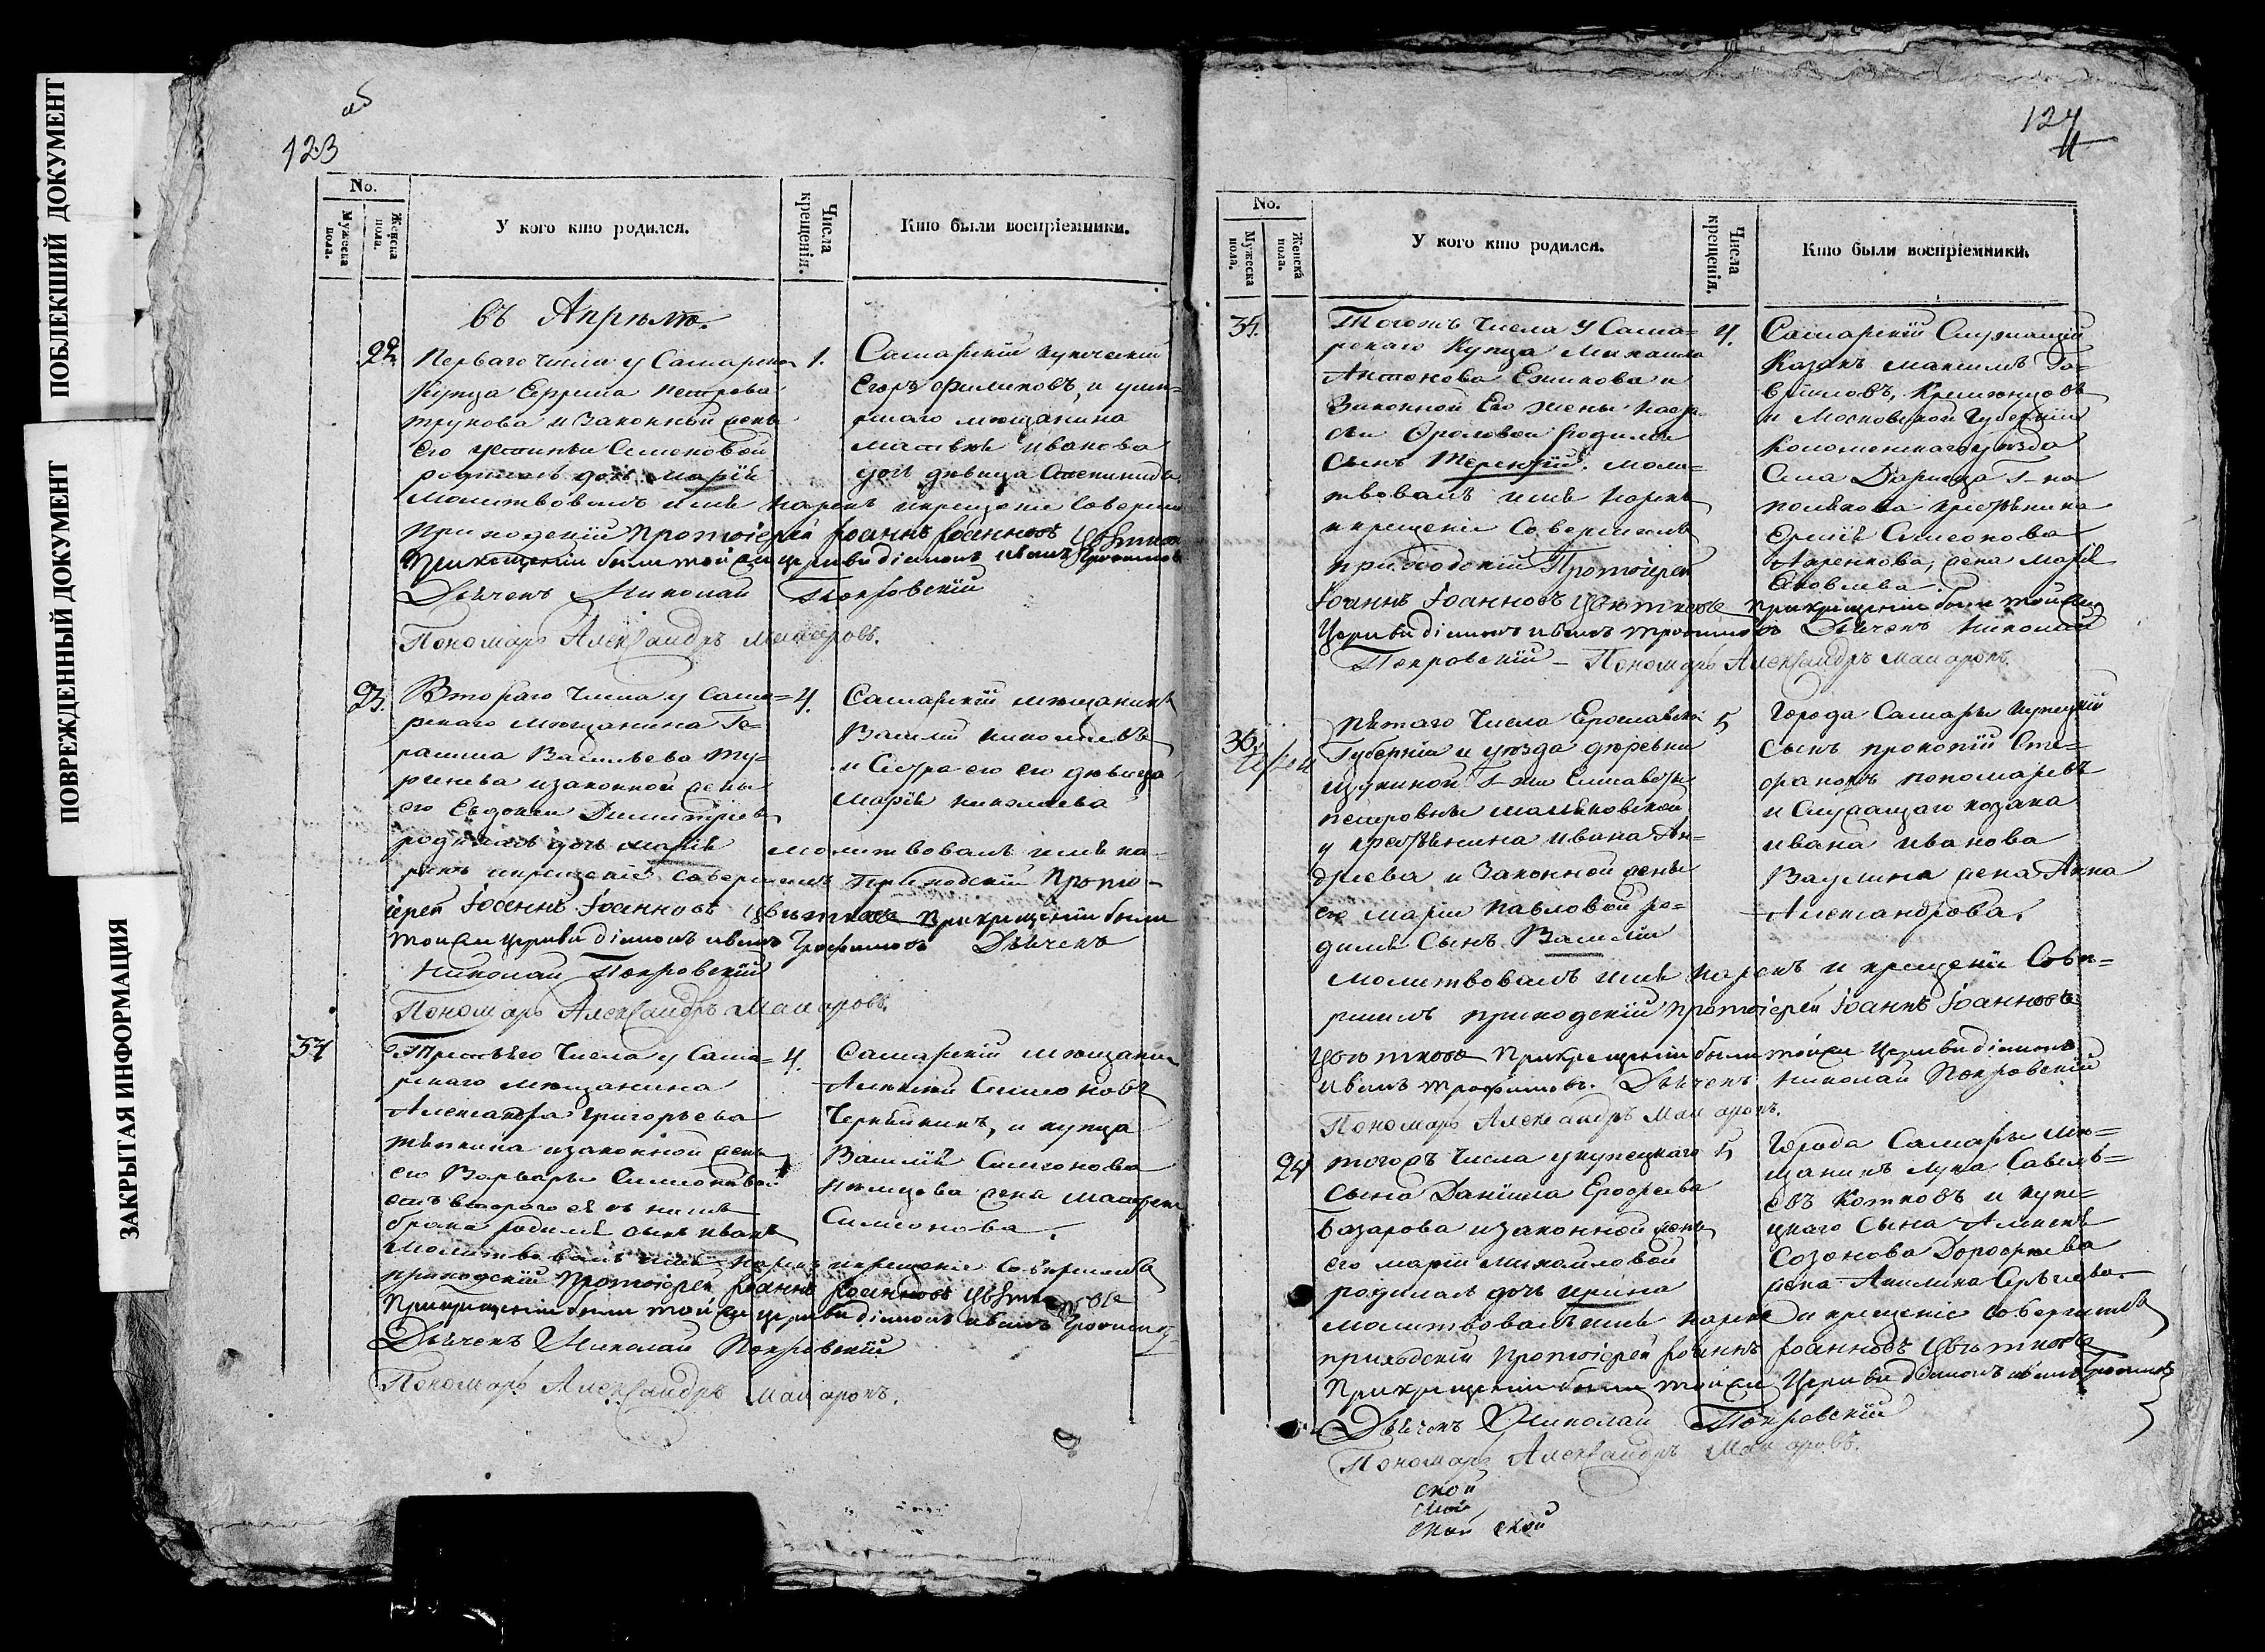 ПОБЛЕКШИЙ ДОКУМЕНТ
ПОВРЕЖДЕННЫЙ ДОКУМЕНТ
ЗАКРЫТАЯ ИНФОРМАЦИЯ
123
No.
Мужеска пола.
Женска пола.
У кого кто родился.
Числа крещенія.
Кто были воспріемники.
въ Апрѣлѣ.
22
Перваго числа у Самарскаго
купца Ефрима Петрова
и законной жены
его Устиньи Симоновой
родилась дочь Марія
1.
Самарскій купеческій
Егоръ Филиповъ, и умер-
шаго мещанина
Матвѣя Иванова
дочь девица Степанида
Молитвовалъ имя нарекъ и крещение соверши
приходскій Протоіерей Іоаннъ Іоанновъ Цвѣтковъ
При крещеніи были той же церкви діаконъ Иванъ Трофимовъ
Дьячекъ Николай Покровскій
Пономарь Александръ Макаровъ.
23.
Втораго числа у Сама=
рскаго мещанина Ге-
расима Васильева
и законной жены
его Евдокіи Димитріев
родилась дочь Марія
4.
Самарскій мещанинъ
Василій Николаевъ
и сестра его девица
Марія Николаева
молитвовалъ имя на-
рекъ и крещеніе совершилъ приходскій Прото-
іерей Іоаннъ Іоанновъ Цвѣтковъ При крещеніи были
той же церкви діаконъ Иванъ Трофимовъ Дьячекъ
Николай Покровскій
Пономарь Александръ Макаровъ.
34
Третьяго числа у Сама=
рскаго мещанина
Александра Григорьева
и законной жены
его Варвары Симоновой
отъ втораго ея съ нимъ
брака родился сынъ Иванъ
4.
Самарскій мещанин
Алексѣй Симоновъ
и купца
Василія Симонова
жена Матрена
Симонова.
Молитвовалъ имя нарекъ и крещеніе совершилъ
приходскій Протоіерей Іоаннъ Іоанновъ Цвѣтковъ
При крещеніи были той же церкви діаконъ Иванъ Трофимовъ
Дьячекъ Николай Покровскій
Пономарь Александръ Макаровъ.
124
No.
Мужеска пола.
Женска пола.
У кого кто родился.
Числа крещенія.
Кто были воспріемники.
35.
Тогожъ числа у Сама-
рскаго купца Михаила
Антонова и
законной его жены
Фроловой родился
сынъ Терентій. моли=
твовалъ имя нарекъ
и крещеніе совершилъ
приходскій Протоіерей
4.
Самарскій служащій
казакъ Максимъ Га-
вриловъ,
и Московской Губерніи
Коломенскаго уѣзда
села
крестьянина
Симеонова
жена Марія
Яковлева.
Іоаннъ Іоанновъ Цвѣтковъ При крещеніи были той же
Церкви діаконъ Иванъ Трофимовъ Дьячекъ Николай
Покровскій - Пономарь Александръ Макаровъ.
36.
Пятаго числа Ерославской
Губерніи и уѣзда деревни
Г-жи Елизаветы
Петровны
у крестьянина Ивана Ан-
дреева и законной жены
его Маріи Павловой ро-
дился сынъ Василій
5
Города Самары купецкій
сынъ Прокопій Сте-
фановъ Пономаревъ
и служащаго козака
Ивана Иванова
жена Анна
Александрова.
молитвовалъ имя нарекъ и крещеніе Сове-
ршилъ приходскій протоіерей Іоаннъ Іоанновъ
Цвѣтковъ При крещеніи были той же церкви діаконъ
Иванъ Трофимовъ. Дьячекъ Николай Покровскій
Пономарь Александръ Макаровъ.
24
тогожъ числа у купецкаго
сына Даніила Ерофеева
Базарова и законной жены
его Маріи Михайловой
родилась дочь Ирина
5
Города Самары ме-
щанинъ Лука Савель-
евъ Котковъ и купе-
цкаго сына Алексѣя
Созонова Дорофеева
жена Акилина Сергѣева.
молитвовалъ имя нарекъ и крещеніе совершилъ
приходскій Протоіерей Іоаннъ Іоанновъ Цвѣтковъ
При крещеніи были той же Церкви діаконъ Иванъ Трофимовъ
Дьячекъ Николай Покровскій
Пономарь Александръ Макаровъ.
ской
ской
ской ской